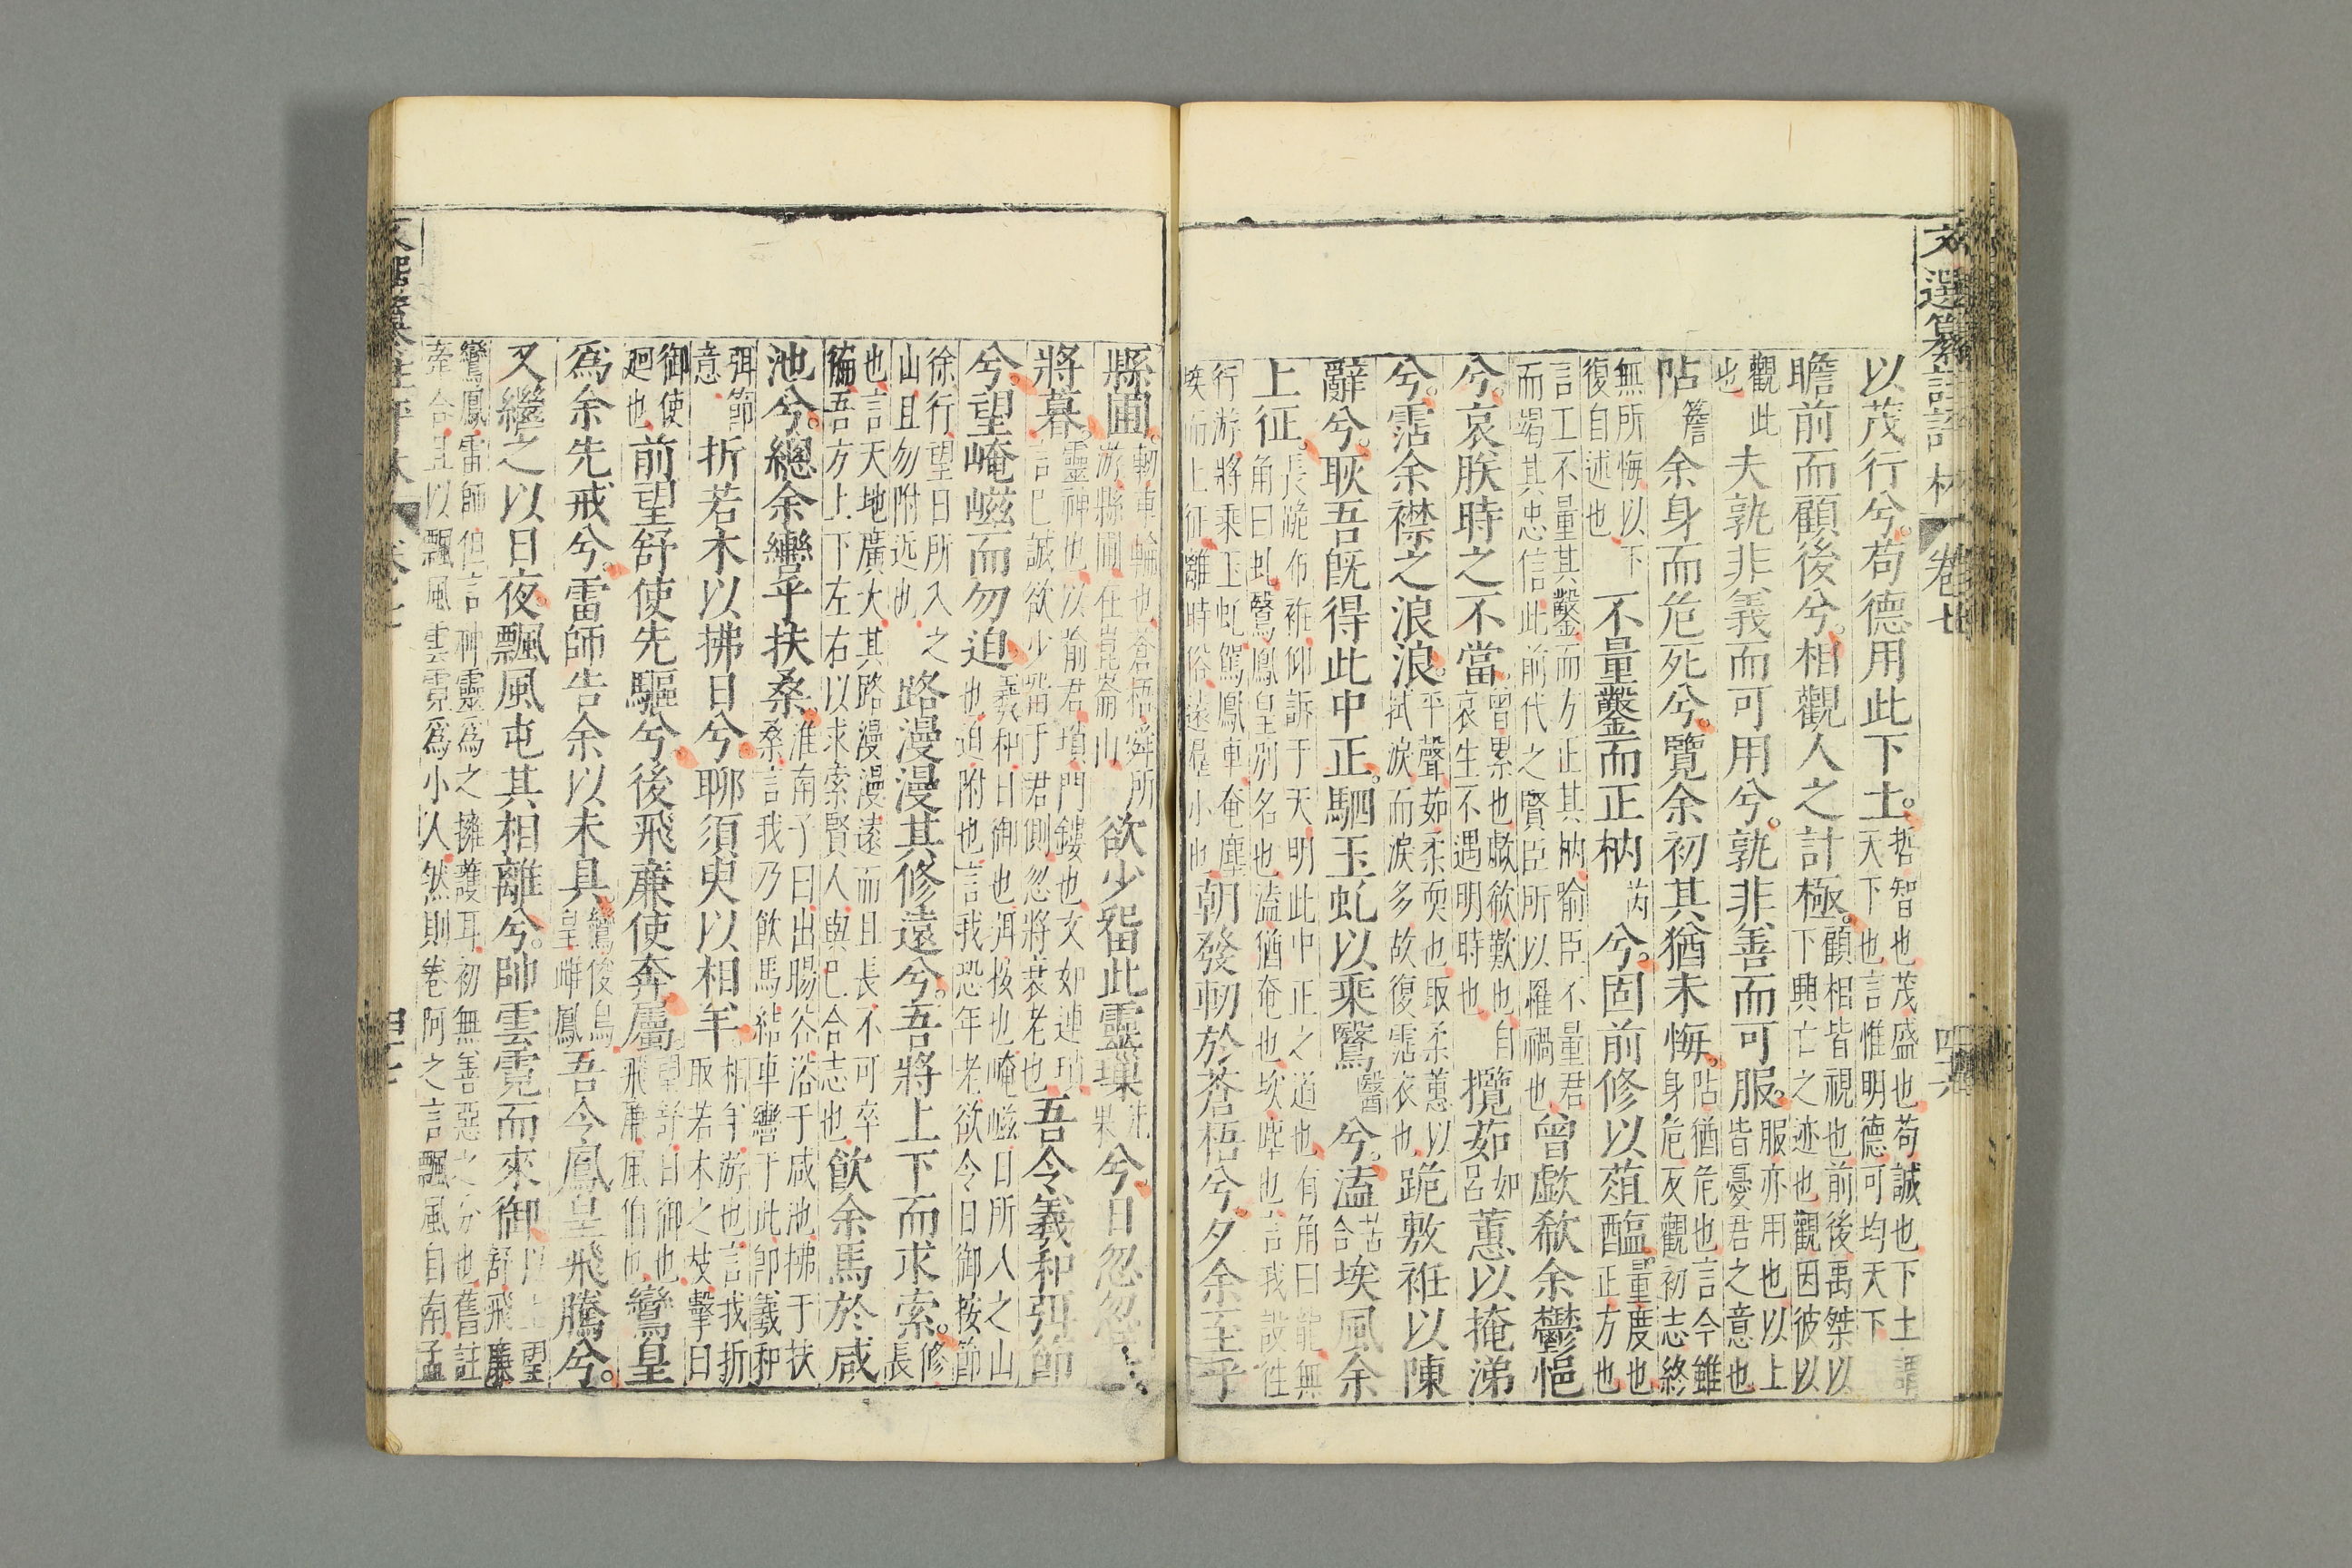 文選纂註評林 卷七 四十六
以茂行兮。苟德用此下土。哲智也茂盛也苟誠也下土謂
天下也言惟明德可均天下
瞻前而顧後兮。相觀人之計極。顧相皆視也前後禹桀以
下興亡之迹也觀因彼以
觀此
也
夫孰非義而可用兮。孰非善而可服。服亦用也以上
皆憂君之意也
阽簷余身而危死兮。覽余初其猶未悔。阽猶危也言今雖
身危反觀初志終
無所悔以下
復自述也
不量鑿而正枘芮兮。固前修以葅醢。量度也
正方也
言工不量其鑿而方正其枘喻臣不量君
而竭其忠信此前代之賢臣所以罹禍也
曾歔欷余鬱悒
兮。哀朕時之不當。曾累也歔欷歎也自
哀生不遇明時也
攬茹如呂蕙以掩涕
兮。霑余襟之浪浪。平聲茹柔耎也取柔蕙以
拭淚而淚多故復霑衣也
跪敷衽以陳
辭兮。耿吾旣得此中正。駟玉虬以乘鷖醫兮。溘苦合埃風余
上征。長跪布衽仰訴于天明此中正之道也有角曰龍無
角曰虬鷖鳳皇別名也溘猶奄也埃塵也言我設往
行游將乘玉虬駕鳳車奄塵
埃而上征離時俗遠羣小也
朝發軔於蒼梧兮。夕余至乎
縣圃。軔車輪也蒼梧舜所
游縣圃在崑崙山
欲少留此靈璅兮日忽忽其
將暮。靈神也以喻君瑣門鏤也文如連瑣
言巳誠欲少留于君側忽將衰老也
吾令羲和弭節
兮。望崦嵫而勿迫。羲和日御也弭按也崦嵫日所入之山
也迫附也言我恐年老欲令日御按節
徐行望日所入之
山且勿附近也
路漫漫其修遠兮。吾將上下而求索。修
長
也言天地廣大其路漫漫遠而且長不可卒
徧吾方上下左右以求索賢人與巳合志也
飲余馬於咸
池兮。總余轡乎扶桑。淮南子曰出暘谷浴于咸池拂于扶
桑言我乃飲馬結車轡于此卽羲和
弭節
意
折若木以拂日兮。聊須臾以相羊。相羊游也言我折
取若木之枝擊日
御使
廻也
前望舒使先驅兮。後飛廉使奔屬。望舒日御也
飛廉風伯也
鸞皇
爲余先戒兮。雷師告余以未具。鸞俊鳥
皇雌鳳
吾令鳳皇飛騰兮。
又繼之以日夜。飄風屯其相離兮。帥雲霓而來御。以上望
舒飛廉
鸞鳳雷師但言神靈爲之擁護耳初無善惡之分也舊註
牽合且以飄風雲霓爲小人然則卷阿之言飄風自南孟
文選纂註評林 卷七 四十七